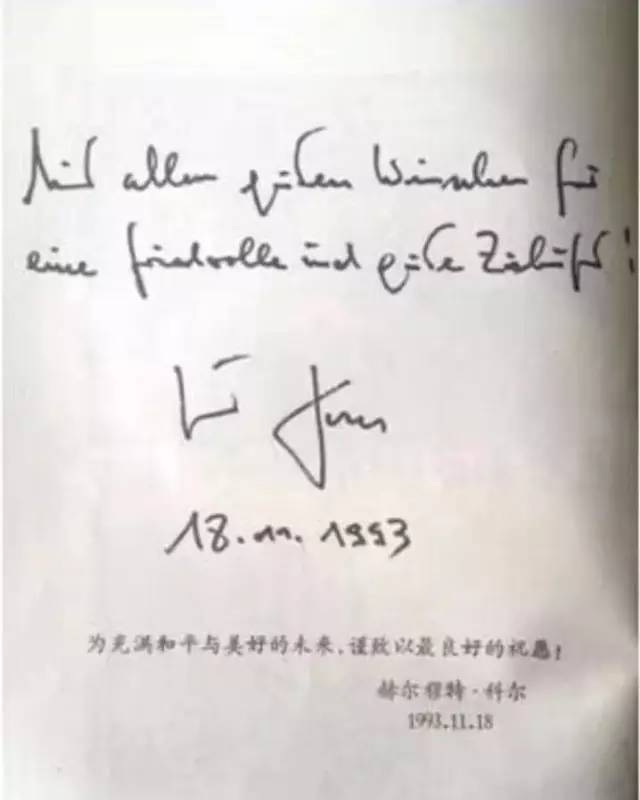 Mit allen guten Wünschen für
eine friedvolle und gute Zukunft!
18.11.1993
为充满和平与美好的未来，谨致以最良好的祝愿！
赫尔穆特·科尔
1993.11.18